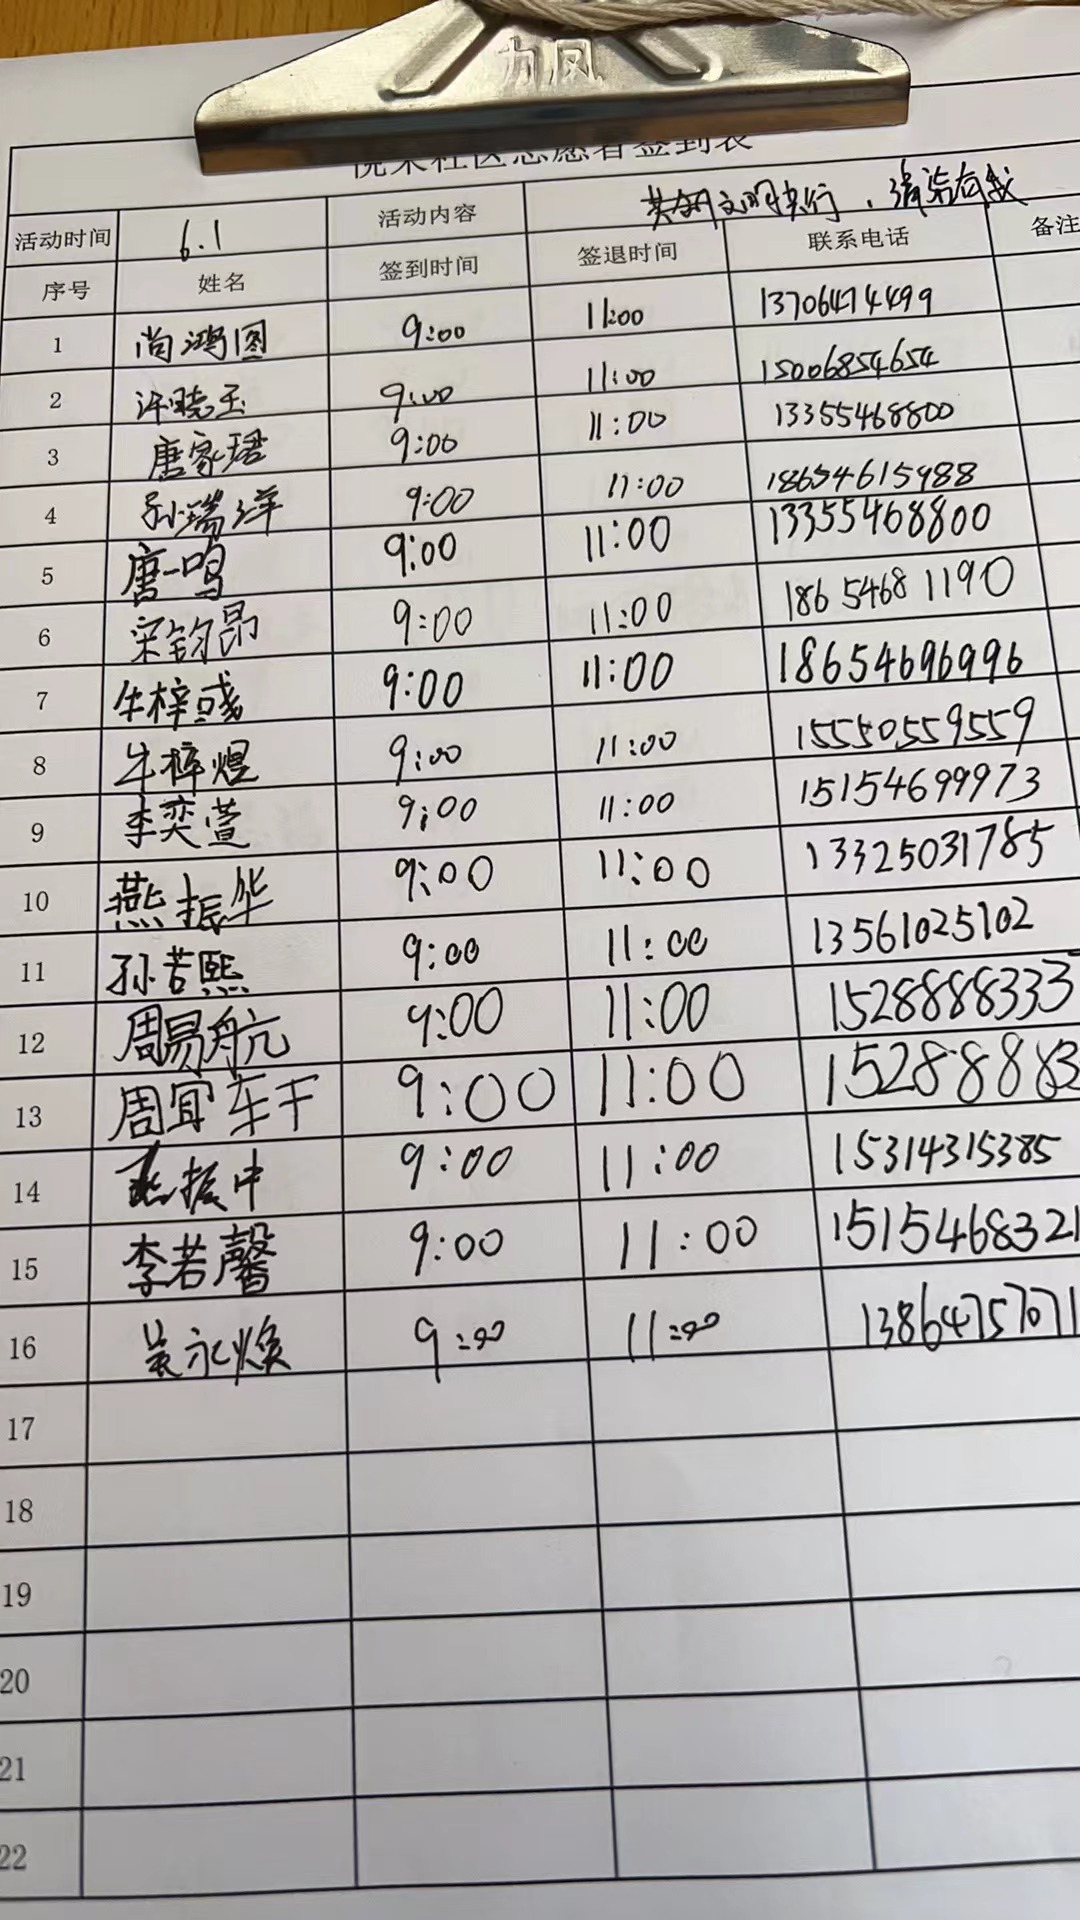 力风
社区志愿者签到表
活动时间 6.1 活动内容 共创文明典行，清洁有我
序号 姓名 签到时间 签退时间 联系电话 备注
1 尚鸿图 9:00 11:00 13706474499
2 许晓玉 9:00 11:00 15006854654
3 唐家珺 9:00 11:00 13355468800
4 孙瑞洋 9:00 11:00 18654615988
5 唐一鸣 9:00 11:00 13355468800
6 宋钧昂 9:00 11:00 18654681190
7 牛梓彧 9:00 11:00 18654696996
8 牛梓煜 9:00 11:00 15550559559
9 李奕萱 9:00 11:00 15154699973
10 燕振华 9:00 11:00 13325031785
11 孙若熙 9:00 11:00 13561025102
12 周易航 9:00 11:00 1528888333
13 周宜车干 9:00 11:00 15288883
14 燕振中 9:00 11:00 15314315385
15 李若馨 9:00 11:00 1515468321
16 吴永焕 9:00 11:00 13864757071
17
18
19
20
21
22